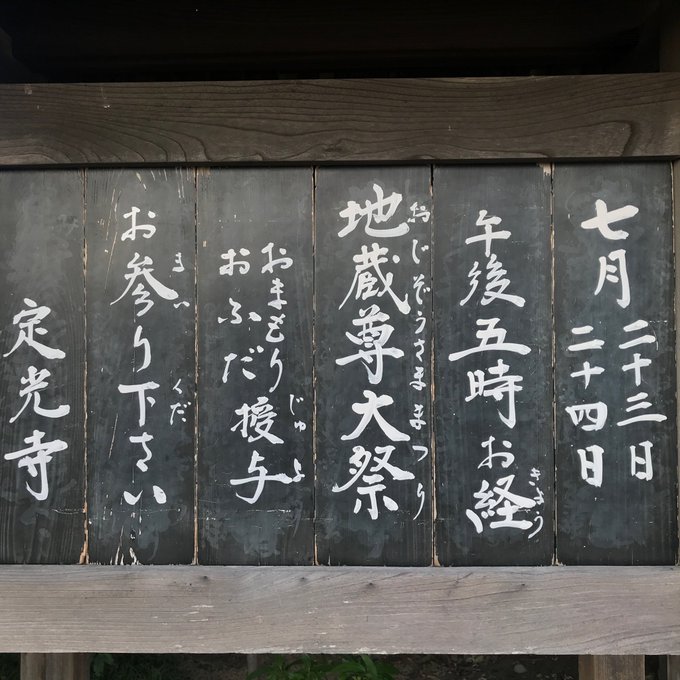 七月二十三日
二十四日
午後五時お経
きょう
地蔵尊大祭
おじぞうさままつり
おまもり
おふだ授与
じゅよ
お参り下さい
まい
くだ
定光寺